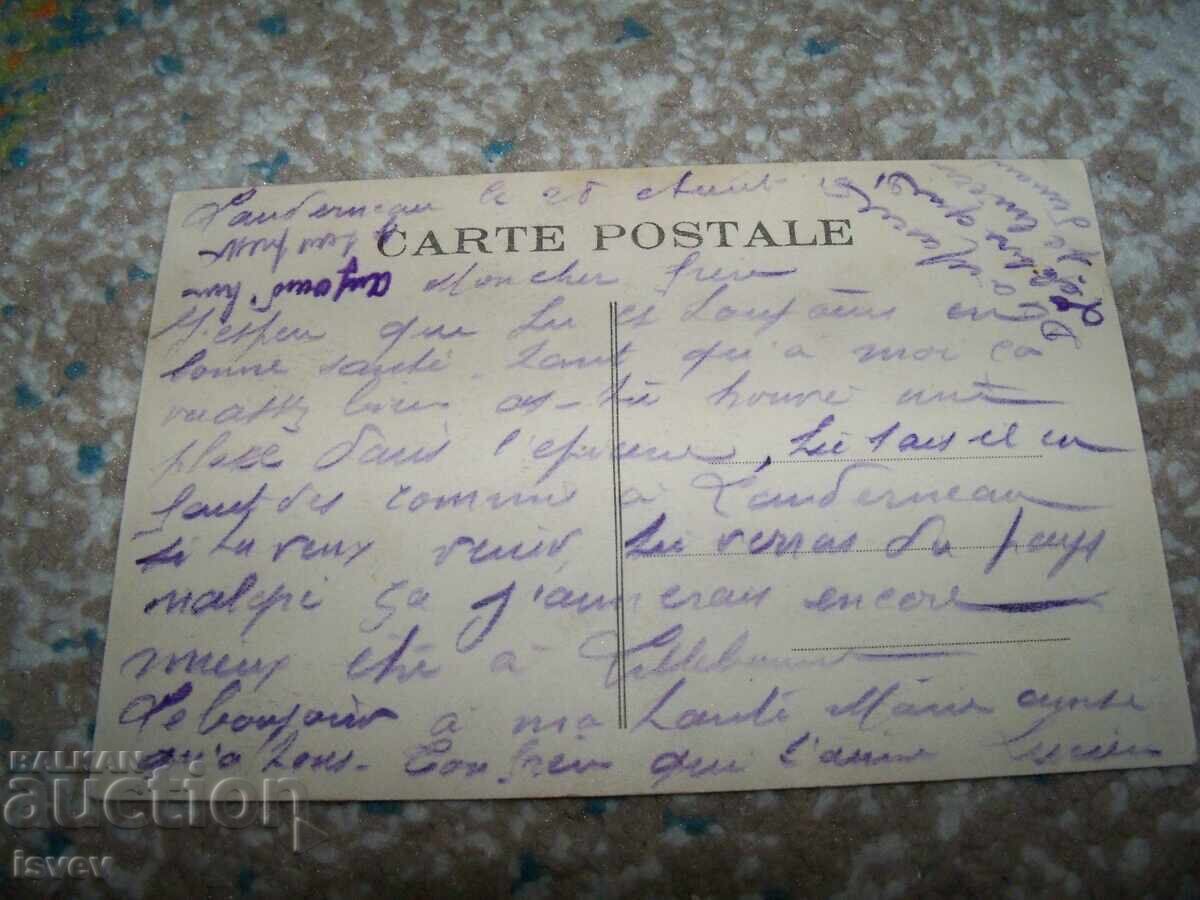 Landerneau le 28 Août 1918
CARTE POSTALE
Mon cher frère
J'espere que tu es toujours en
bonne santé. tant qu'a moi ça
va assez bien as-tu trouvé une
place dans l'epicerie, tu sais il en
faut des commis à Landerneau
si tu veux venir, tu verras du pays
malgré ça j'aimerais encore
mieux être à Lillebonne
Le bonjour à ma tante Marie ainsi
qu'a tous. Ton frère qui t'aime Lucien
BALKAN
auction
isvev